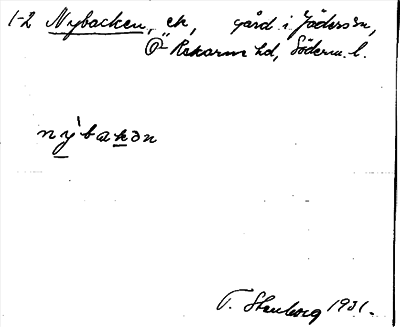 1-2 Nybacken, en gård i Jäders sn,
Ö Rekarne hd, Söderm. l.
nybakən
T. Stenborg 1931.